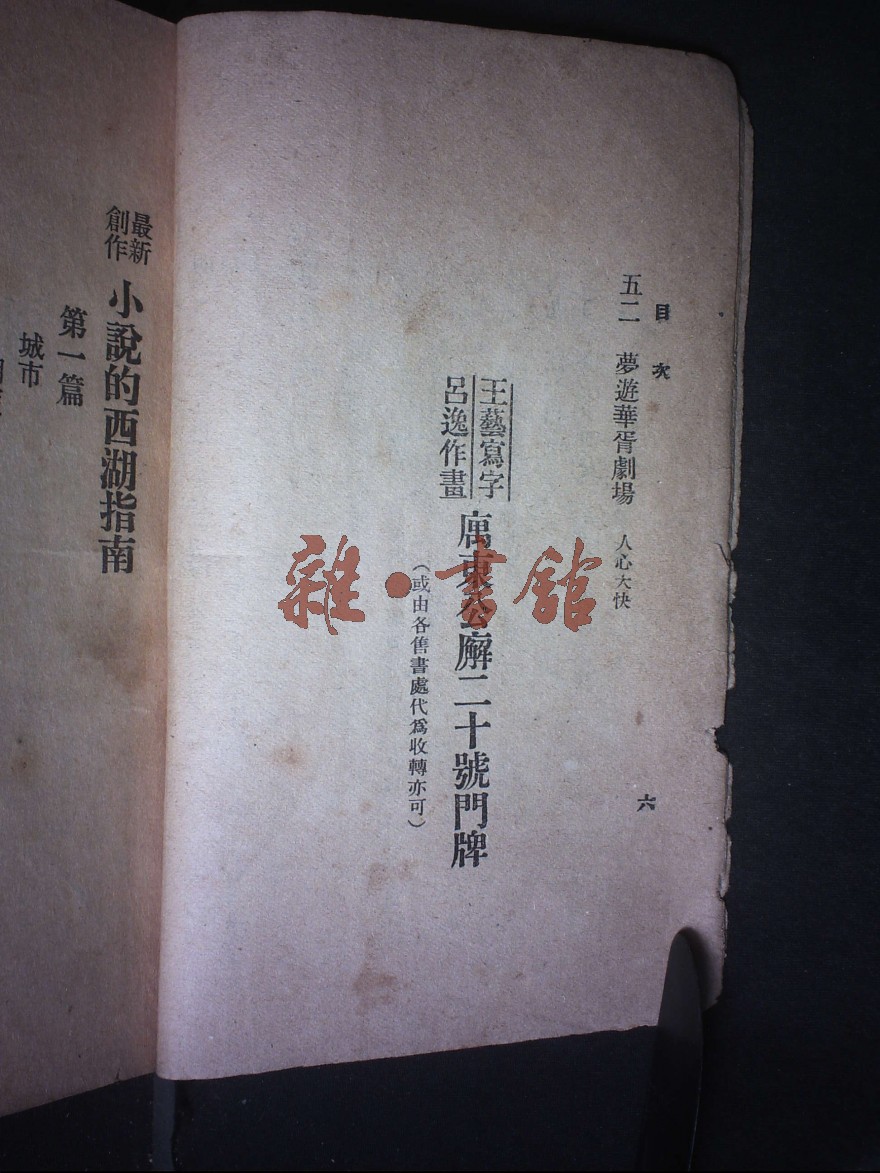 目次
六
五二 夢遊華胥劇場 人心大快
王藝寫字
呂逸作畫
寓東公廨二十號門牌
(或由各售書處代爲收轉亦可)
雜·書館
最新
創作
小說的西湖指南
第一篇
城市